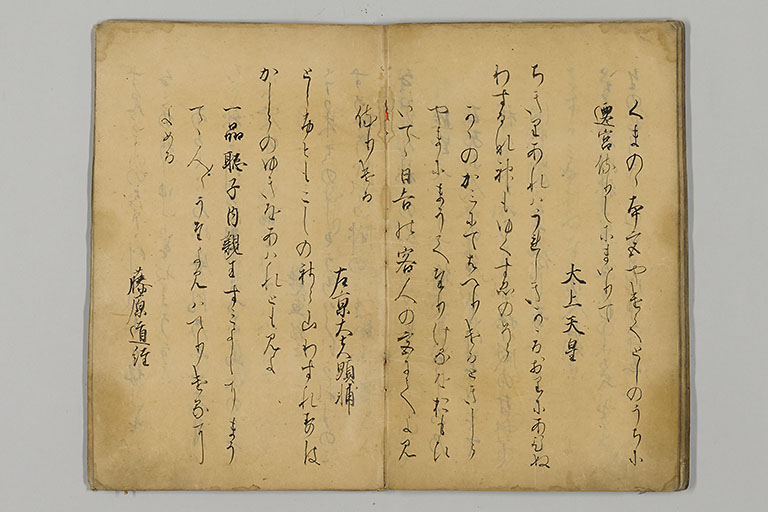 くまのゝ本宮やけてとしのうちに
遷宮侍しにまいりて
太上天皇
ちきりあれはうれしきかゝるおりにあひぬ
わするな神もゆくすゑのそら
かゝのかみにて侍けるときしら
やまにまうてたりけるをおもひ
いてゝ日吉の客人の宮にてよみ
侍ける
左京大夫顕輔
としふともこしの白山わすれすは
かしらのゆきをあはれとも見よ
一品聡子内親王すみよしにまう
てゝ人〳〵うたよみ侍けるに
よめる
藤原道経